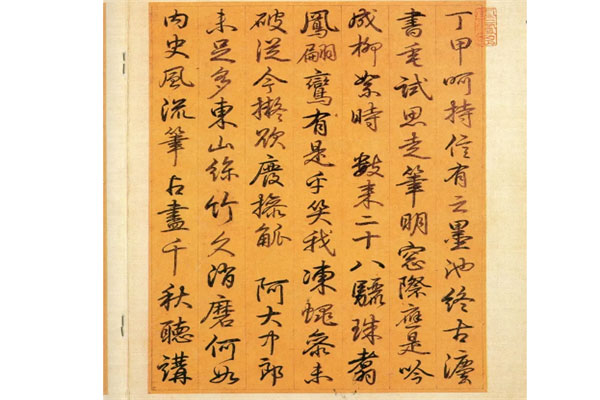 丁甲呵持信有之墨池終古
書毫試思走筆明窗際應是吟
成柳絮時 數來二十八驪珠翥
鳳翩鸞有是乎笑我凍蠅參未
破從今擬欲廢操觚 阿大中郎
未足多東山絲竹久消磨何如
內史風流筆占盡千秋聽講